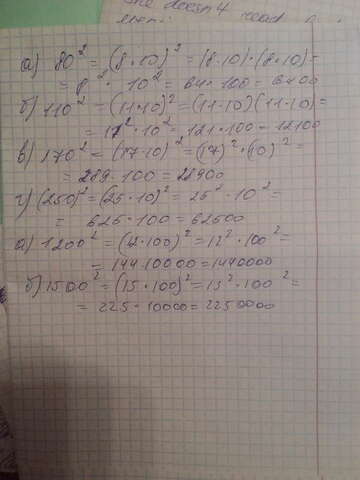 she doesn't read
а) 80² = (8·10)² = (8·10)·(8·10) =
= 8² · 10² = 64 · 100 = 6400
б) 110² = (11·10)² = (11·10)(11·10) =
= 11² · 10² = 121 · 100 = 12100
в) 170² = (17·10)² = (17)² · (10)² =
= 289 · 100 = 28900
г) (250)² = (25·10)² = 25² · 10² =
= 625 · 100 = 62500
а) 1200² = (12·100)² = 12² · 100² =
= 144 · 10000 = 1440000
б) 1500² = (15·100)² = 15² · 100² =
= 225 · 10000 = 2250000